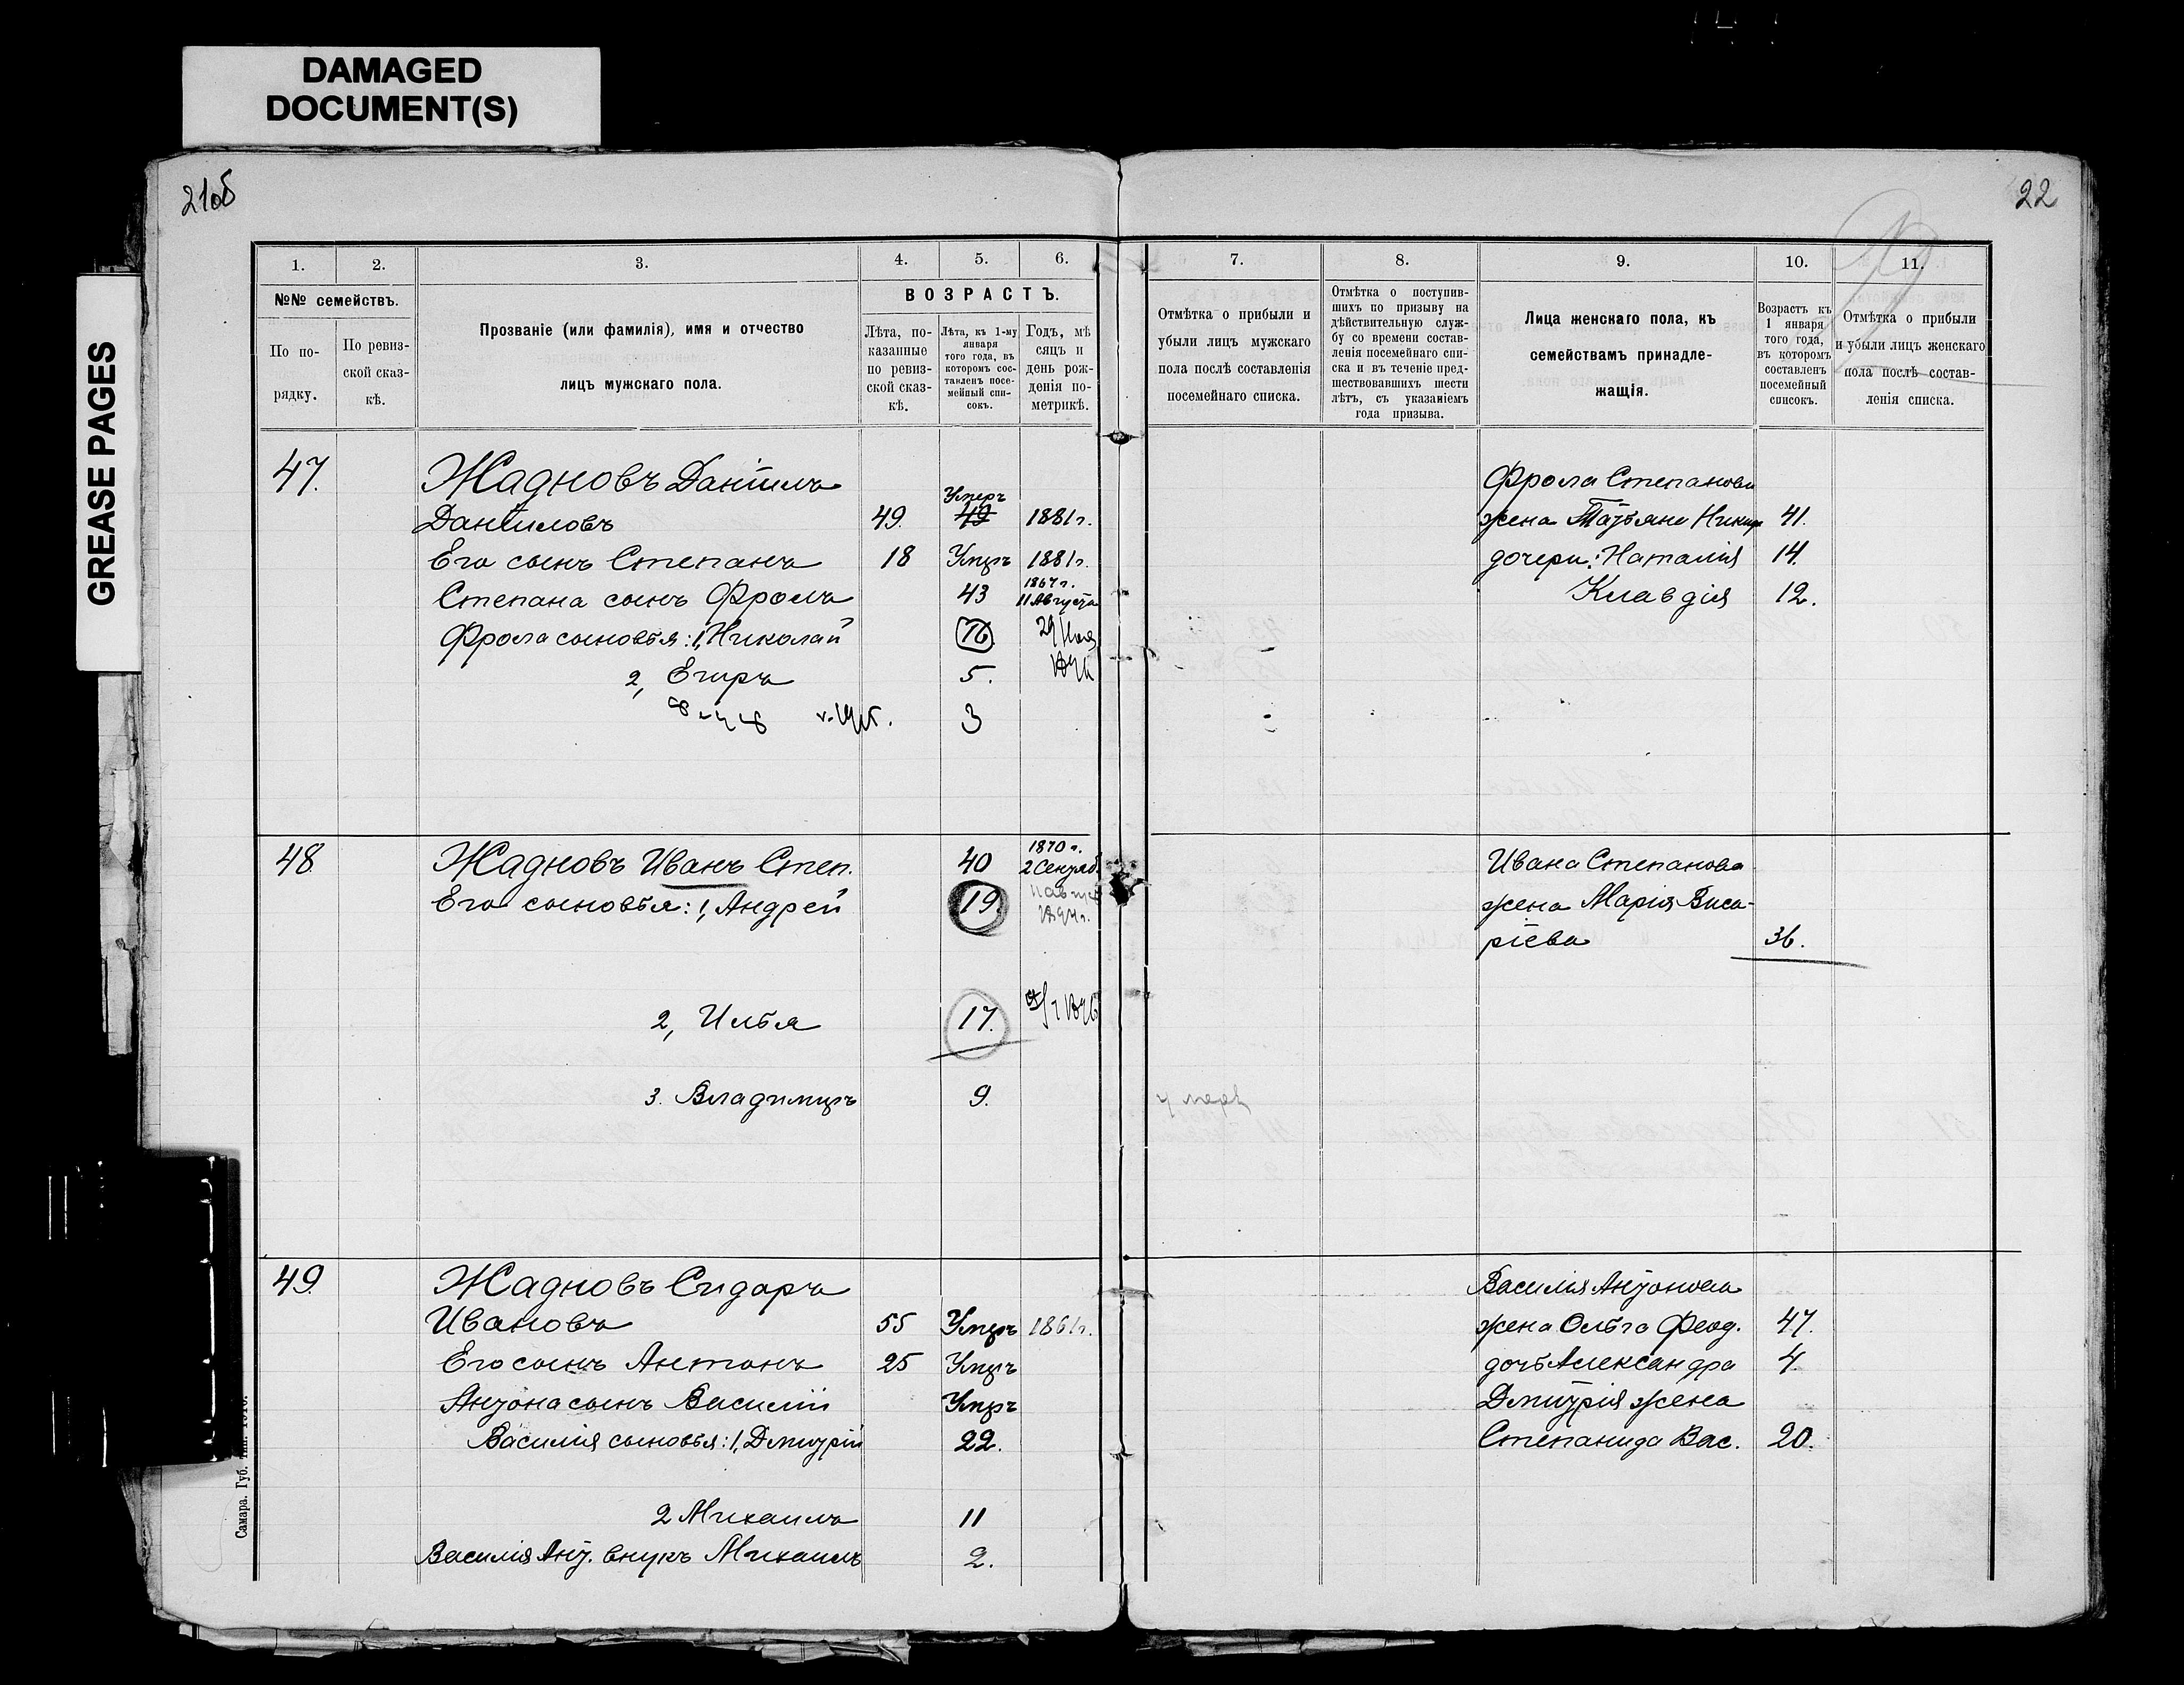 DAMAGED
DOCUMENT(S)
GREASE PAGES
21об
22
1.
2.
3.
4.
5.
6.
№№ семействъ.
По по-
рядку.
По ревиз-
ской сказ-
кѣ.
Прозваніе (или фамилія), имя и отчество
лицъ мужскаго пола.
ВОЗРАСТЪ.
Лѣта, по-
казанные
по ревиз-
ской сказ-
кѣ.
Лѣта, къ 1-му
января
того года, въ
которомъ сос-
тавленъ посе-
мейный спи-
сокъ.
Годъ, мѣ
сяцъ и
день рож-
денія по-
метрикѣ.
7.
8.
9.
10.
11.
Отмѣтка о прибыли и
убыли лицъ мужскаго
пола послѣ составленія
посемейнаго списка.
Отмѣтка о поступив-
шихъ по призыву на
дѣйствительную служ-
бу со времени состав-
ленія посемейнаго спи-
ска и въ теченіе пред-
шествовавшихъ шести
лѣтъ, съ указаніемъ
года призыва.
Лица женскаго пола, къ
семействамъ принадле-
жащія.
Возрастъ къ
1 января
того года,
въ которомъ
составленъ
посемейный
списокъ.
Отмѣтка о прибыли
и убыли лицъ женскаго
пола послѣ состав-
ленія списка.
47. Жадновъ Даніилъ
Умеръ
Даніиловъ 49. 49 1881г.
Его сынъ Степанъ 18 Умръ 1881г.
1867г.
Степана сынъ Фролъ 43 11 Августа
Фрола сыновья: 1, Николай 16 29
2, Егоръ 5.
3
Фрола Степанова
жена Татьяна Никиф 41.
дочери: Наталія 14.
Клавдія 12.
1870г.
48. Жадновъ Иванъ Степ. 40 2 Сентяб.
Его сыновья: 1, Андрей 19.
2, Илья 17.
3. Владимиръ 9. умеръ
Ивана Степанова
жена Марія Виса-
ріева 36.
49. Жадновъ Сидоръ
Ивановъ 55 Умръ 1861г.
Его сынъ Антонъ 25 Умръ
Антона сынъ Василій Умръ
Василія сыновья: 1, Дмитрій 22.
2 Михаилъ 11
Василія Ант. внукъ Михаилъ 2.
Василія Антонова
жена Ольга Феод. 47.
дочь Александра 4.
Дмитрія жена
Степанида Вас. 20.
Самара. Губ. Тип.